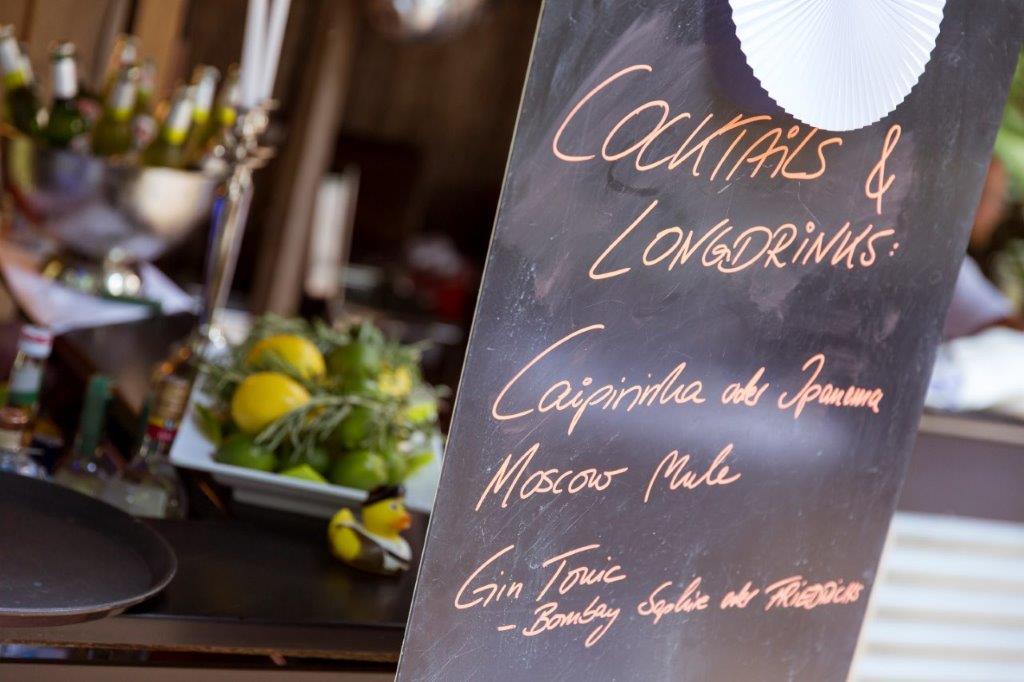 COCKTAiLS &
LONGDRiNKS:
Caipirinha oder Ipanema
Moscow Mule
Gin Tonic
- Bombay Saphire oder FRiEDRiCHS